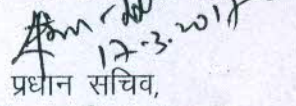 17-3.2017
प्रधान सचिव,